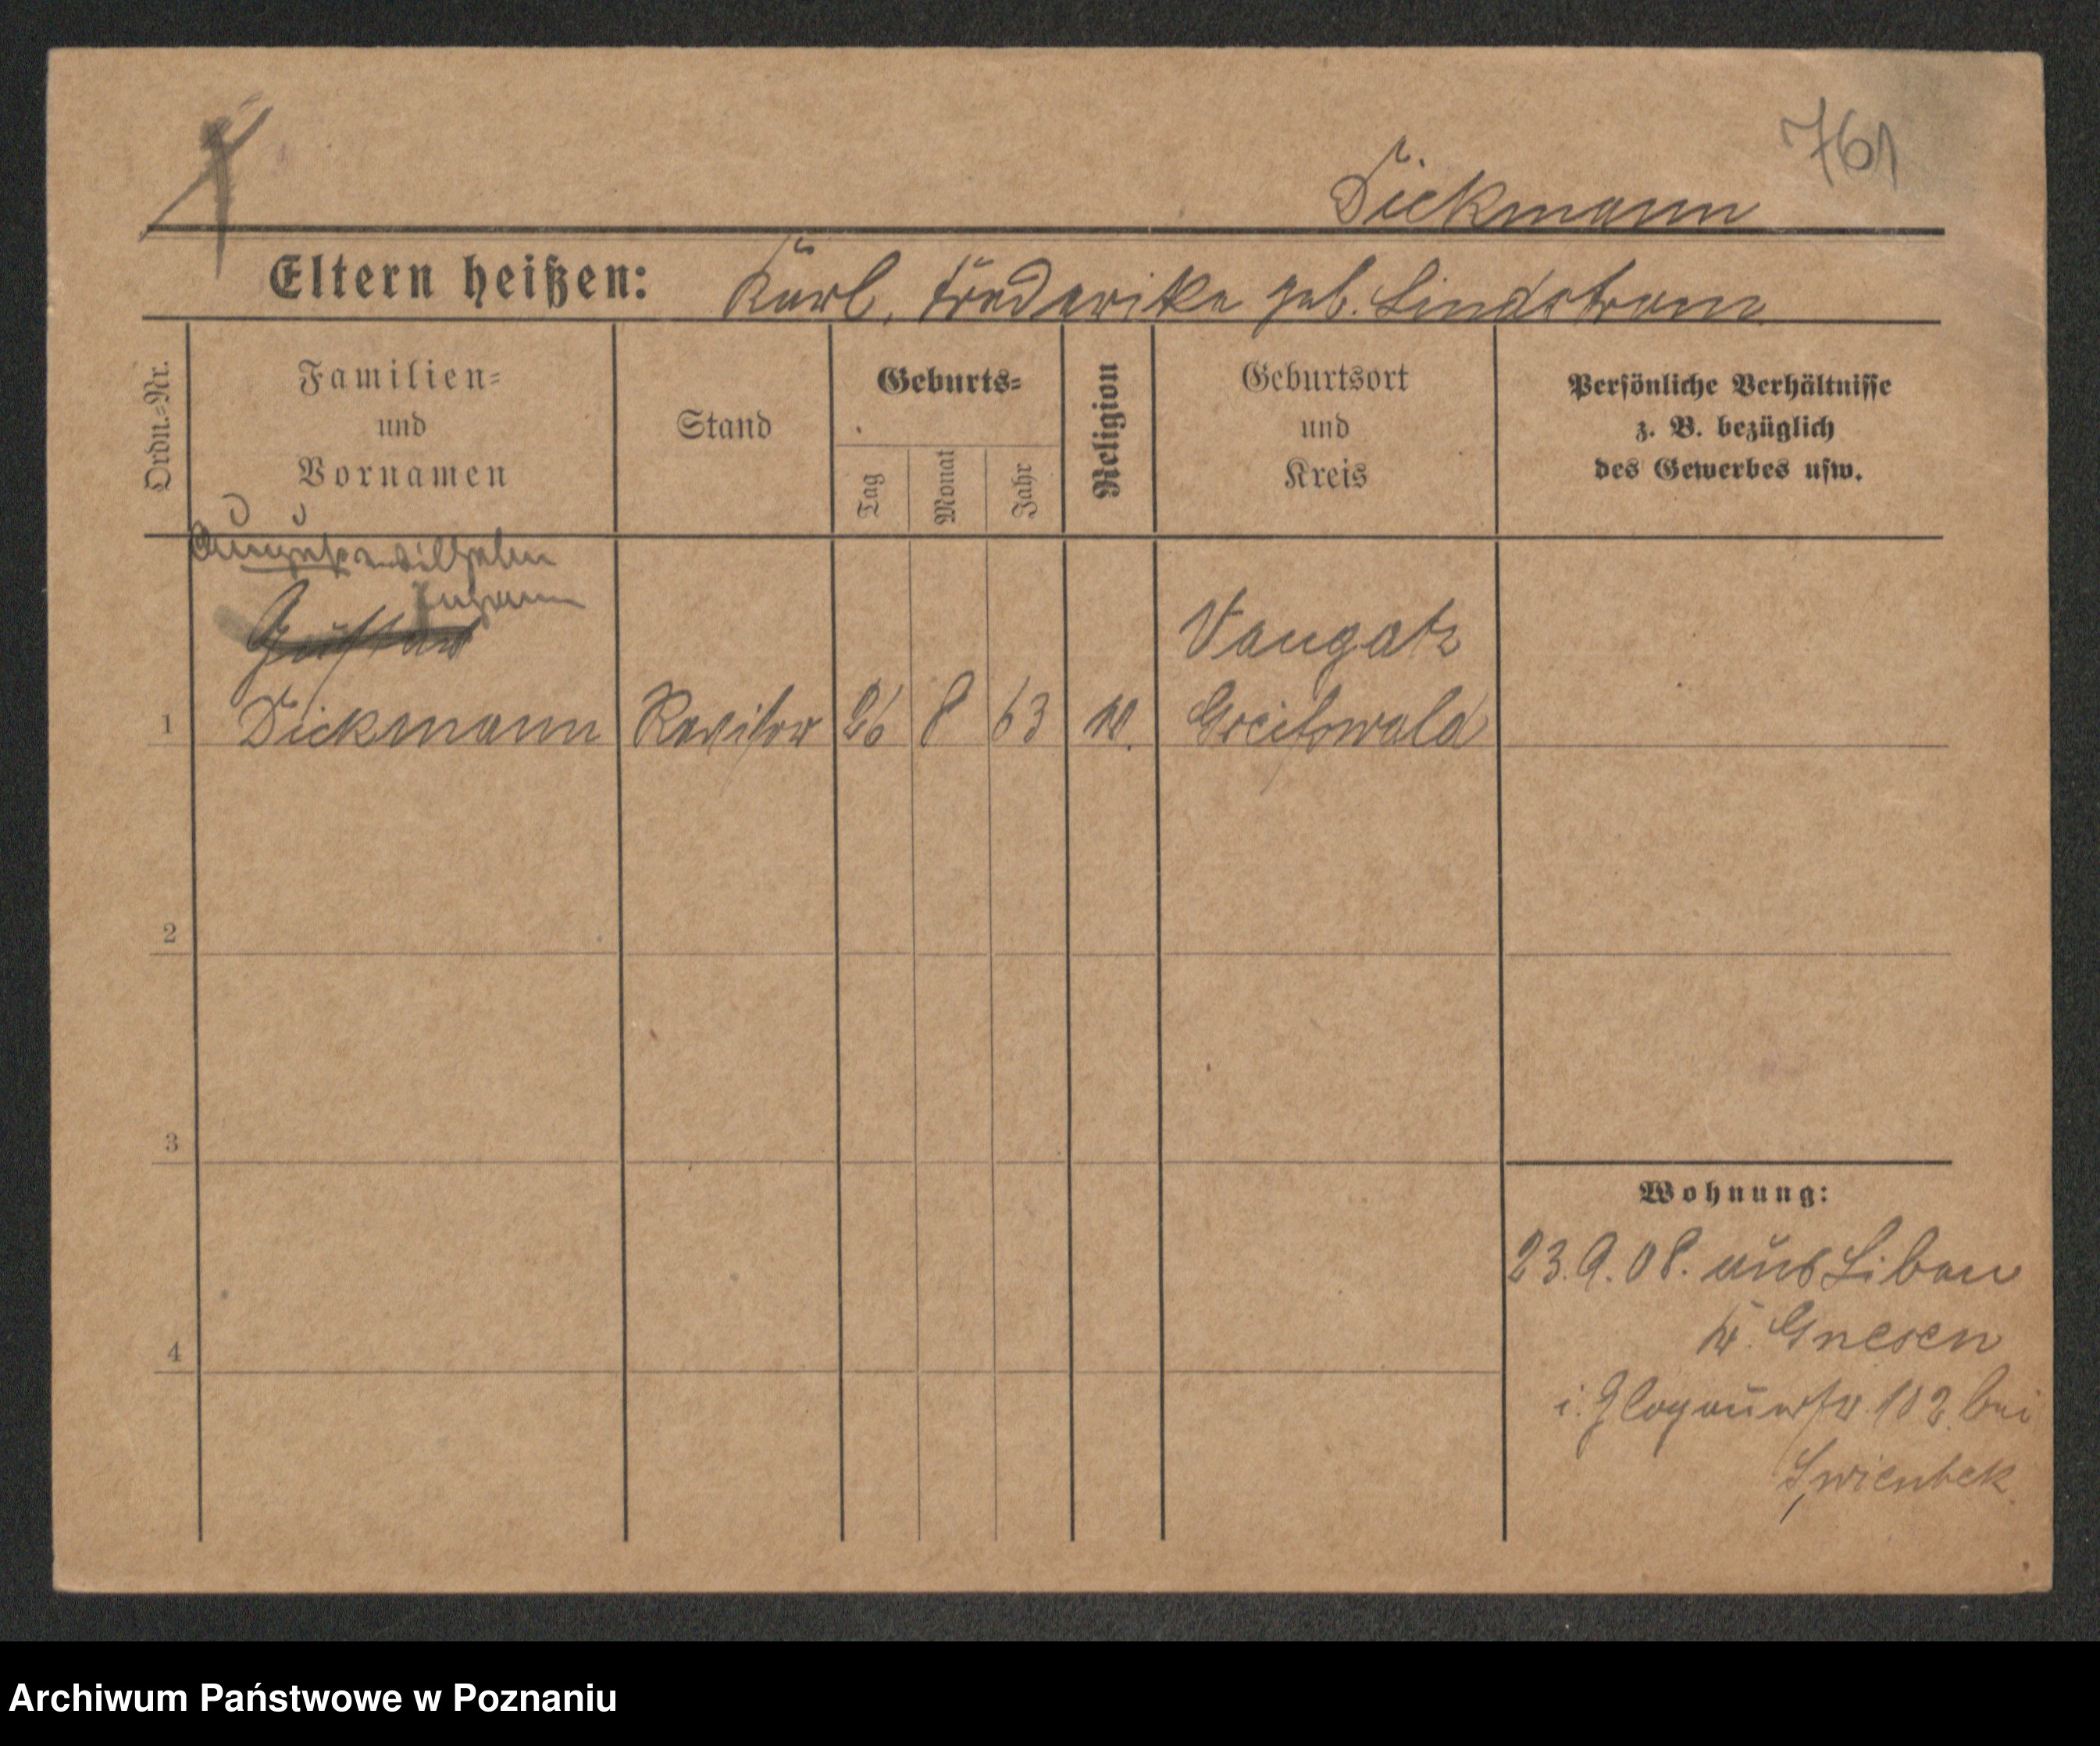 761
Dickmann
Eltern heißen: Karl, Frederike geb. Lindstram
Ordn.=Nr.
Familien=
und
Vornamen
Stand
Geburts=
Tag
Monat
Jahr
Religion
Geburtsort
und
Kreis
Persönliche Verhältnisse
z. B. bezüglich
des Gewerbes usw.
August Wilhelm
Johann
Gustav
Vangatz
1 Dickmann Revisor 26 8 63 Greifswald
2
3
4
Wohnung:
23.9.08. aus Libau
Kr. Gnesen
i. Glogauerstr 102 bei
Archiwum Państwowe w Poznaniu